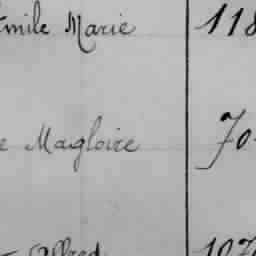 Emile Marie 118
e Magloire 70
Alfred 107